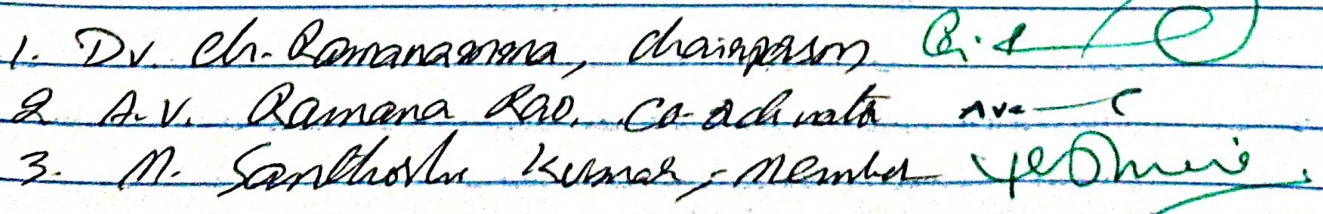 1. Dr. Ch. Ramanamma, Chairperson
2 A.V. Ramana Rao. Co-ordinator
3. M. Santhosh Kumar, - Member